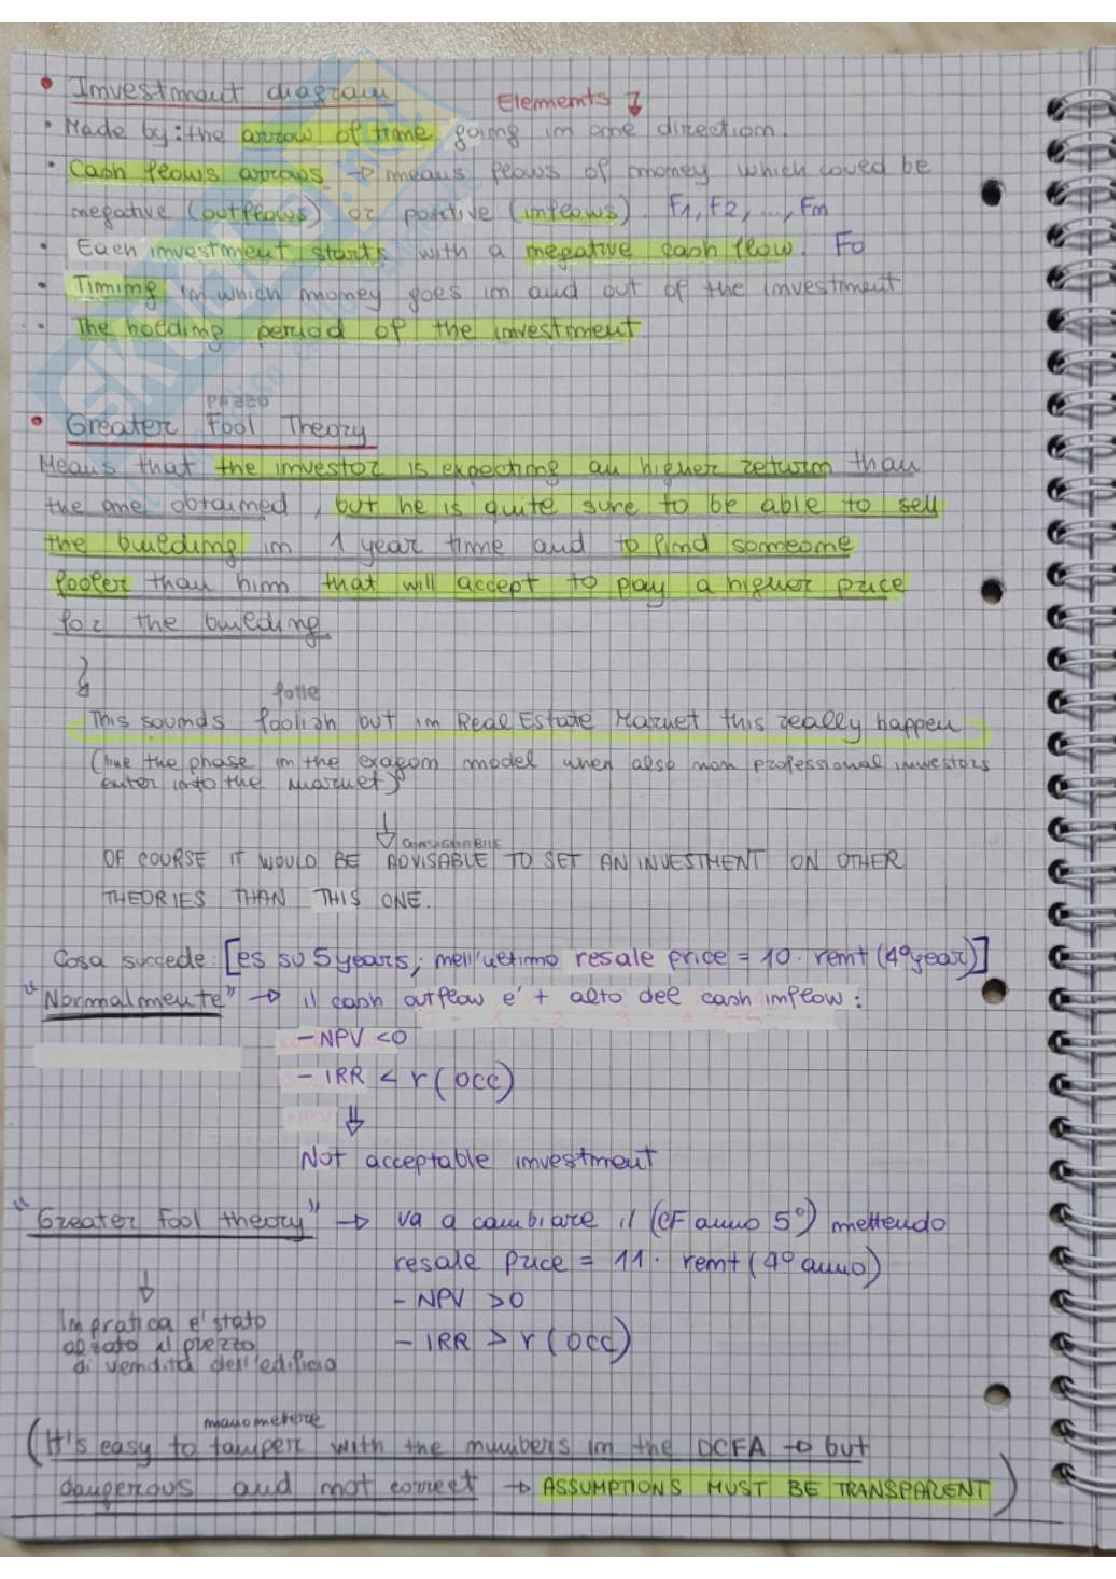 • Investment diagram
Elements ↓
• Made by: the arrow of time going in one direction.
• Cash flows arrows → means flows of money which could be
negative (outflows) or positive (inflows) F1, F2, ..., Fn
• Each investment starts with a negative cash flow. Fo
• Timing in which money goes in and out of the investment
• The holding period of the investment
pazzo
• Greater Fool Theory
Means that the investor is expecting an higher return than
the one obtained, but he is quite sure to be able to sell
the building in 1 year time and to find someone
fooler than him that will accept to pay a higher price
for the building
folle
This sounds foolish but in Real Estate Market this really happen
(like the phase in the exagon model when also non professional investors
enter into the market)
↓ consigliabile
OF COURSE IT WOULD BE ADVISABLE TO SET AN INVESTMENT ON OTHER
THEORIES THAN THIS ONE.
Cosa succede: [es su 5 years, nell'ultimo resale price = 10 · rent (4° year)]
"Normalmente" → il cash outflow e' + alto del cash inflow:
- NPV <0
- IRR < r (OCC)
⇓
Not acceptable investment
"Greater fool theory" → va a cambiare il (CF anno 5°) mettendo
resale price = 11 · rent (4° anno)
- NPV >0
- IRR > r (OCC)
↓
In pratica e' stato
alzato il prezzo
di vendita dell'edificio
manomettere
(It's easy to tamper with the numbers in the DCFA → but
dangerous and not correct → ASSUMPTIONS MUST BE TRANSPARENT)